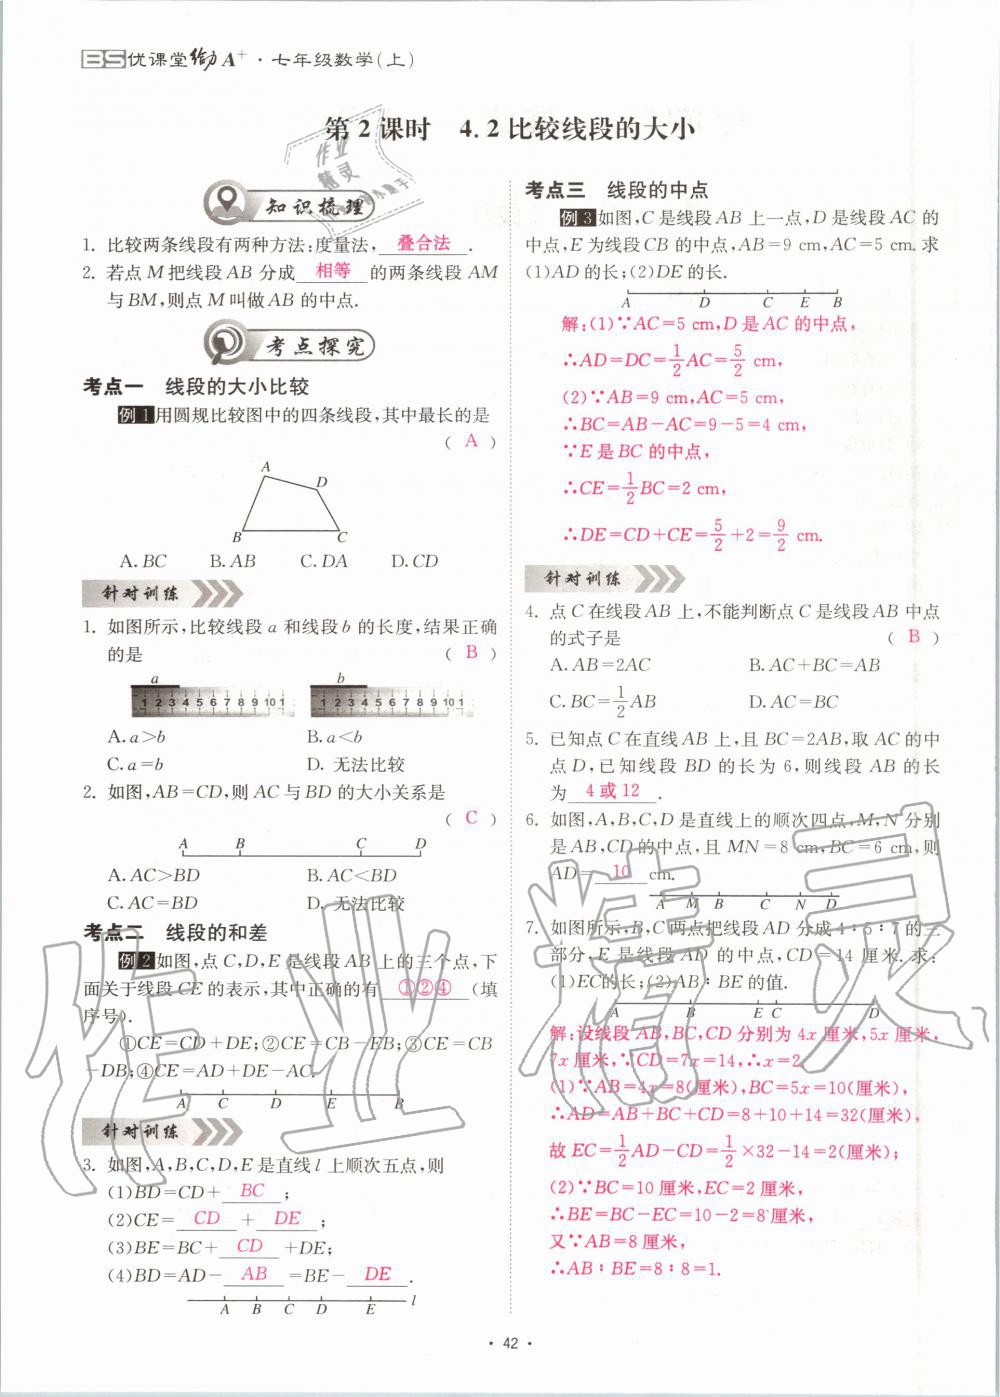 BS优课堂给力A⁺·七年级数学(上)
第2课时 4.2比较线段的大小
知识梳理
1. 比较两条线段有两种方法:度量法, 叠合法 .
2. 若点M把线段AB分成 相等 的两条线段AM
与BM,则点M叫做AB的中点.
考点探究
考点一 线段的大小比较
例1 用圆规比较图中的四条线段,其中最长的是
( A )
A
D
B C
A.BC B.AB C.DA D.CD
针对训练
1. 如图所示,比较线段a和线段b的长度,结果正确
的是 ( B )
a b
1 2 3 4 5 6 7 8 9 10 1 1 2 3 4 5 6 7 8 9 10 1
A.a>b B.a<b
C.a=b D. 无法比较
2. 如图,AB=CD,则AC与BD的大小关系是
( C )
A B C D
A.AC>BD B.AC<BD
C.AC=BD D. 无法比较
考点二 线段的和差
例2 如图,点C,D,E是线段AB上的三个点,下
面关于线段CE的表示,其中正确的有 ①②④ (填
序号).
①CE=CD+DE;②CE=CB-EB;③CE=CB
-DB;④CE=AD+DE-AC.
A C D E B
针对训练
3. 如图,A,B,C,D,E是直线l上顺次五点,则
(1)BD=CD+ BC ;
(2)CE= CD + DE ;
(3)BE=BC+ CD +DE;
(4)BD=AD- AB =BE- DE .
A B C D E l
考点三 线段的中点
例3 如图,C是线段AB上一点,D是线段AC的
中点,E为线段CB的中点,AB=9 cm,AC=5 cm.求
(1)AD的长;(2)DE的长.
A D C E B
解:(1)∵AC=5 cm,D是AC的中点,
∴AD=DC=1/2AC=5/2 cm,
(2)∵AB=9 cm,AC=5 cm,
∴BC=AB-AC=9-5=4 cm,
∵E是BC的中点,
∴CE=1/2BC=2 cm,
∴DE=CD+CE=5/2+2=9/2 cm.
针对训练
4. 点C在线段AB上,不能判断点C是线段AB中点
的式子是 ( B )
A.AB=2AC B.AC+BC=AB
C.BC=1/2AB D.AC=BC
5. 已知点C在直线AB上,且BC=2AB,取AC的中
点D,已知线段BD的长为6,则线段AB的长
为 4或12 .
6. 如图,A,B,C,D是直线上的顺次四点,M,N分别
是AB,CD的中点,且MN=8 cm,BC=6 cm,则
AD= 10 cm.
A M B C N D
7. 如图所示,B,C两点把线段AD分成4∶5∶7的三
部分,E是线段AD的中点,CD=14厘米.求:
(1)EC的长;(2)AB∶BE的值.
A B E C D
解:设线段AB,BC,CD分别为4x厘米,5x厘米,
7x厘米,∵CD=7x=14,∴x=2.
(1)∵AB=4x=8(厘米),BC=5x=10(厘米),
∴AD=AB+BC+CD=8+10+14=32(厘米),
故EC=1/2AD-CD=1/2×32-14=2(厘米);
(2)∵BC=10厘米,EC=2厘米,
∴BE=BC-EC=10-2=8厘米,
又∵AB=8厘米,
∴AB∶BE=8∶8=1.
作业精灵
· 42 ·